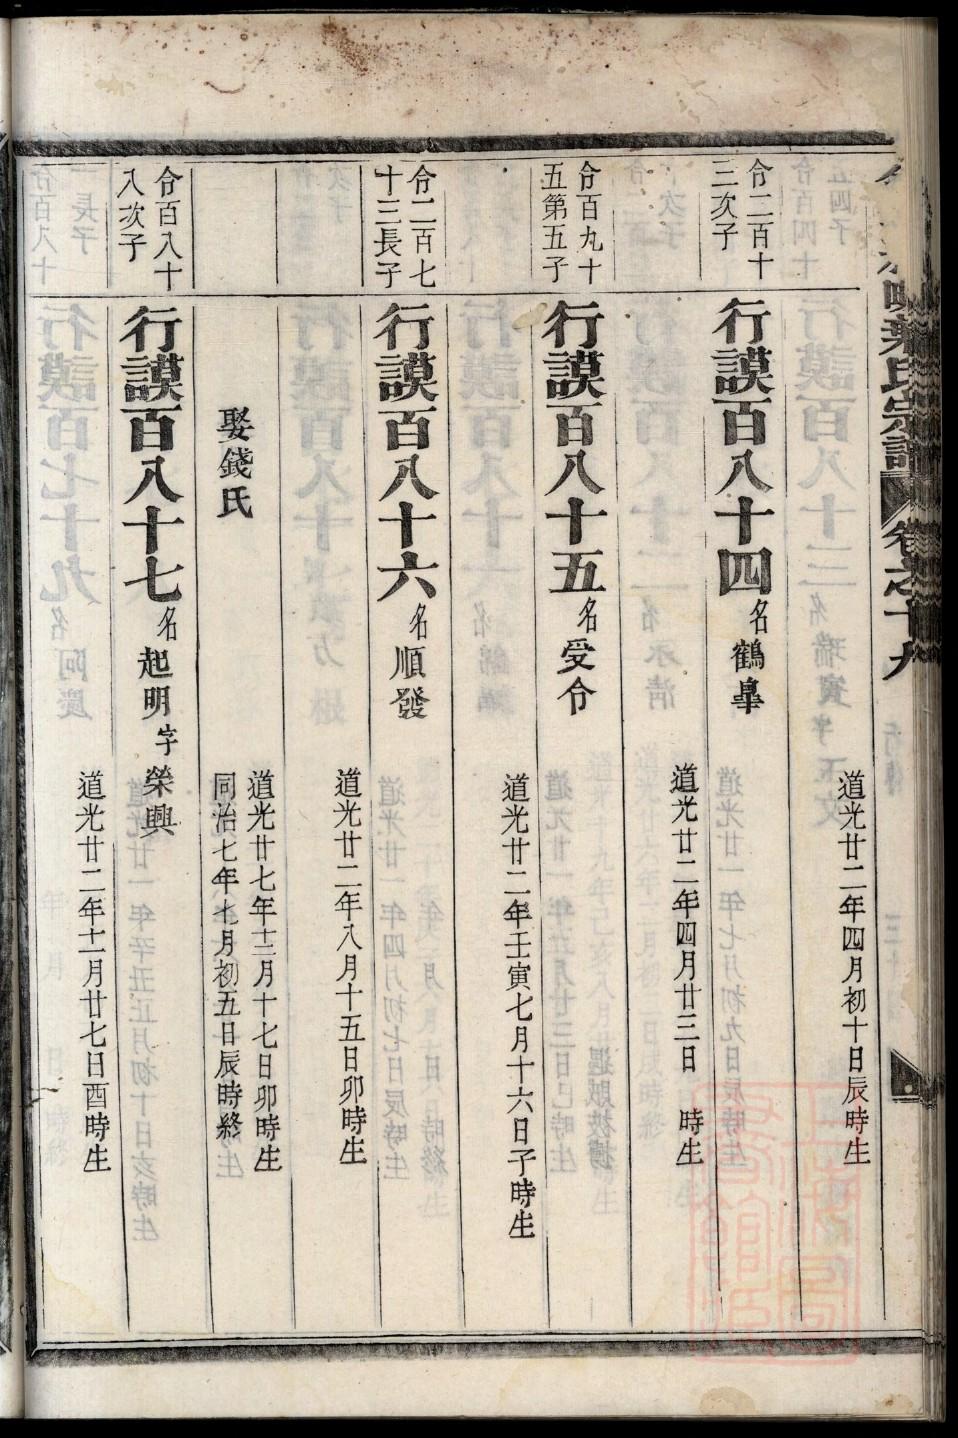 氏宗譜 卷之十九
道光廿二年四月初十日辰時生
令二百十三次子
行謨百八十四 名鶴皐
道光廿二年四月廿三日 時生
令百九十五第五子
行謨百八十五 名受令
道光廿二年壬寅七月十六日子時生
令二百七十三長子
行謨百八十六 名順發
道光廿二年八月十五日卯時生
娶錢氏
道光廿七年十二月十七日卯時生
同治七年七月初五日辰時終
令百八十八次子
行謨百八十七 名起明字榮興
道光廿二年十一月廿七日酉時生